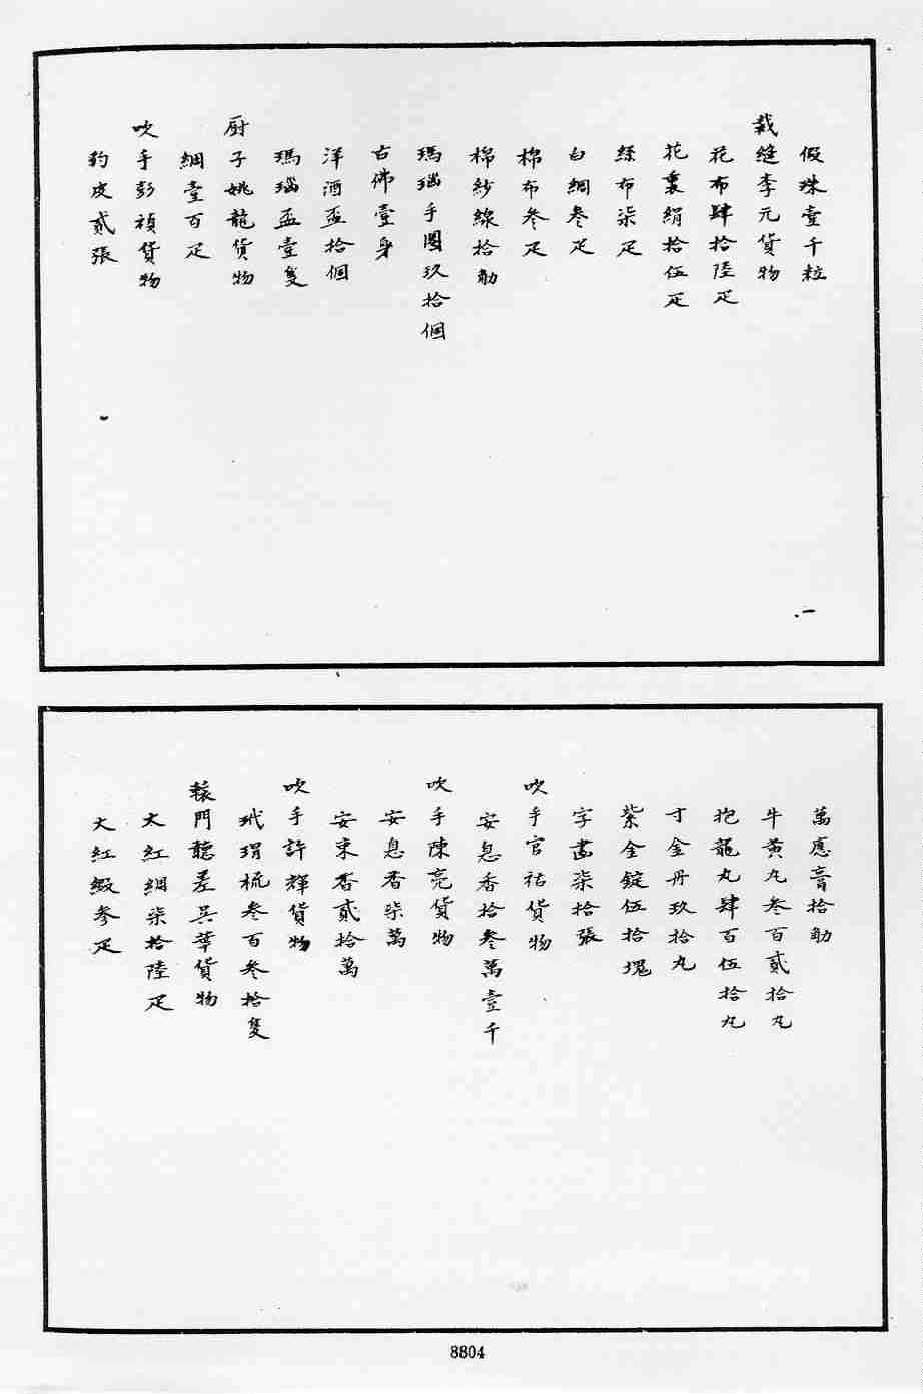 假珠壹千粒
裁縫李元貨物
花布肆拾陸疋
花裏絹拾伍疋
絲布柒疋
白綢叁疋
棉布叁疋
棉紗線拾觔
瑪瑙手圈玖拾個
古佛壹身
洋酒盃拾個
瑪瑙盃壹隻
厨子姚龍貨物
綢壹百疋
吹手彭禎貨物
豹皮貳張
萬應膏拾觔
牛黃丸叁百貳拾丸
抱龍丸肆百伍拾丸
寸金丹玖拾丸
紫金錠伍拾塊
字畫柒拾張
吹手官祐貨物
安息香拾叁萬壹千
吹手陳亮貨物
安息香柒萬
安束香貳拾萬
吹手許輝貨物
玳瑁梳叁百叁拾隻
轅門聽差吳華貨物
大紅綢柒拾陸疋
大紅緞參疋
8804